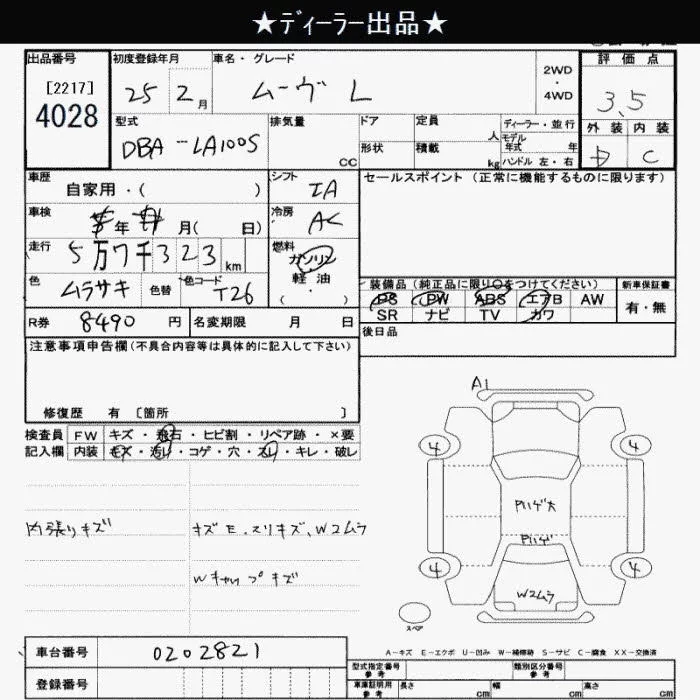 ★ディーラー出品★
出品番号 初度登録年月 車名・グレード 評価点
[2217] 25 2月 ムーヴ L 2WD・4WD 3.5
4028 型式 排気量 ドア 定員 人 ディーラー・並行 外装 内装
DBA-LA100S CC 形状 積載 kg モデル年式 年 ハンドル 左・右 C
車歴 自家用・( ) シフト IA セールスポイント(正常に機能するものに限ります)
車検 年 月( 日) 冷房 AC
走行 5万7千323km 燃料 ガソリン
軽油
(・)
色 ムラサキ 色替 色コード T26 装備品(純正品に限り○をつけてください) 新車保証書
PS PW ABS エアB AW 有・無
R券 8490円 名変期限 月 日 SR ナビ TV カワ
注意事項申告欄(不具合内容等は具体的に記入して下さい) 後日品
修復歴 有 [箇所 ]
検査員 FW キズ・飛石・ヒビ割・リペア跡・×要
記入欄 内装 キズ・汚れ・コゲ・穴・スレ・キレ・破レ
A1
4 4
内張りキズ キズE.スリキズ、W2ムラ
Pハゲ大
Pハゲ
Wキャップキズ
4 4
W2ムラ
スペア
A-キズ E-エクボ U-凹み W-補修跡 S-サビ C-腐食 XX-交換済
車台番号 0202821 型式指定番号 参考 類別区分番号 参考
登録番号 車庫証明用 参考 長さ cm 幅 cm 高さ cm